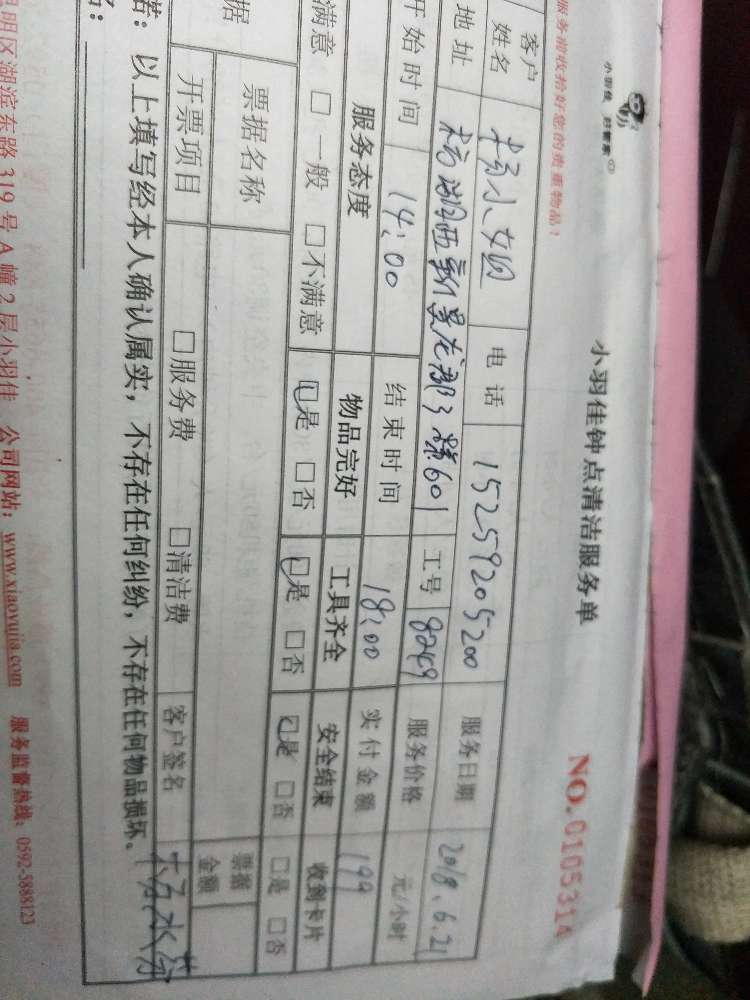 小羽佳 好管家
小羽佳钟点清洁服务单
NO.0105314
服务前收拾好您的贵重物品！
客户姓名 杨小姐 电话 15259205200 服务日期 2018.6.21
地址 601 工号 8249 服务价格 元/小时
开始时间 14:00 结束时间 18:00 实付金额 199
服务态度 物品完好 工具齐全 安全结束 收到卡片
满意 □一般 □不满意 □是 □否 □是 □否 □是 □否 □是 □否
据 票据名称 票据金额
开票项目 □服务费 □清洁费 客户签名
诺：以上填写经本人确认属实，不存在任何纠纷，不存在任何物品损坏。
名：
明区湖滨东路319号A幢2层小羽佳 公司网站：www.xiaoyujia.com 服务监督热线：0592-5888123